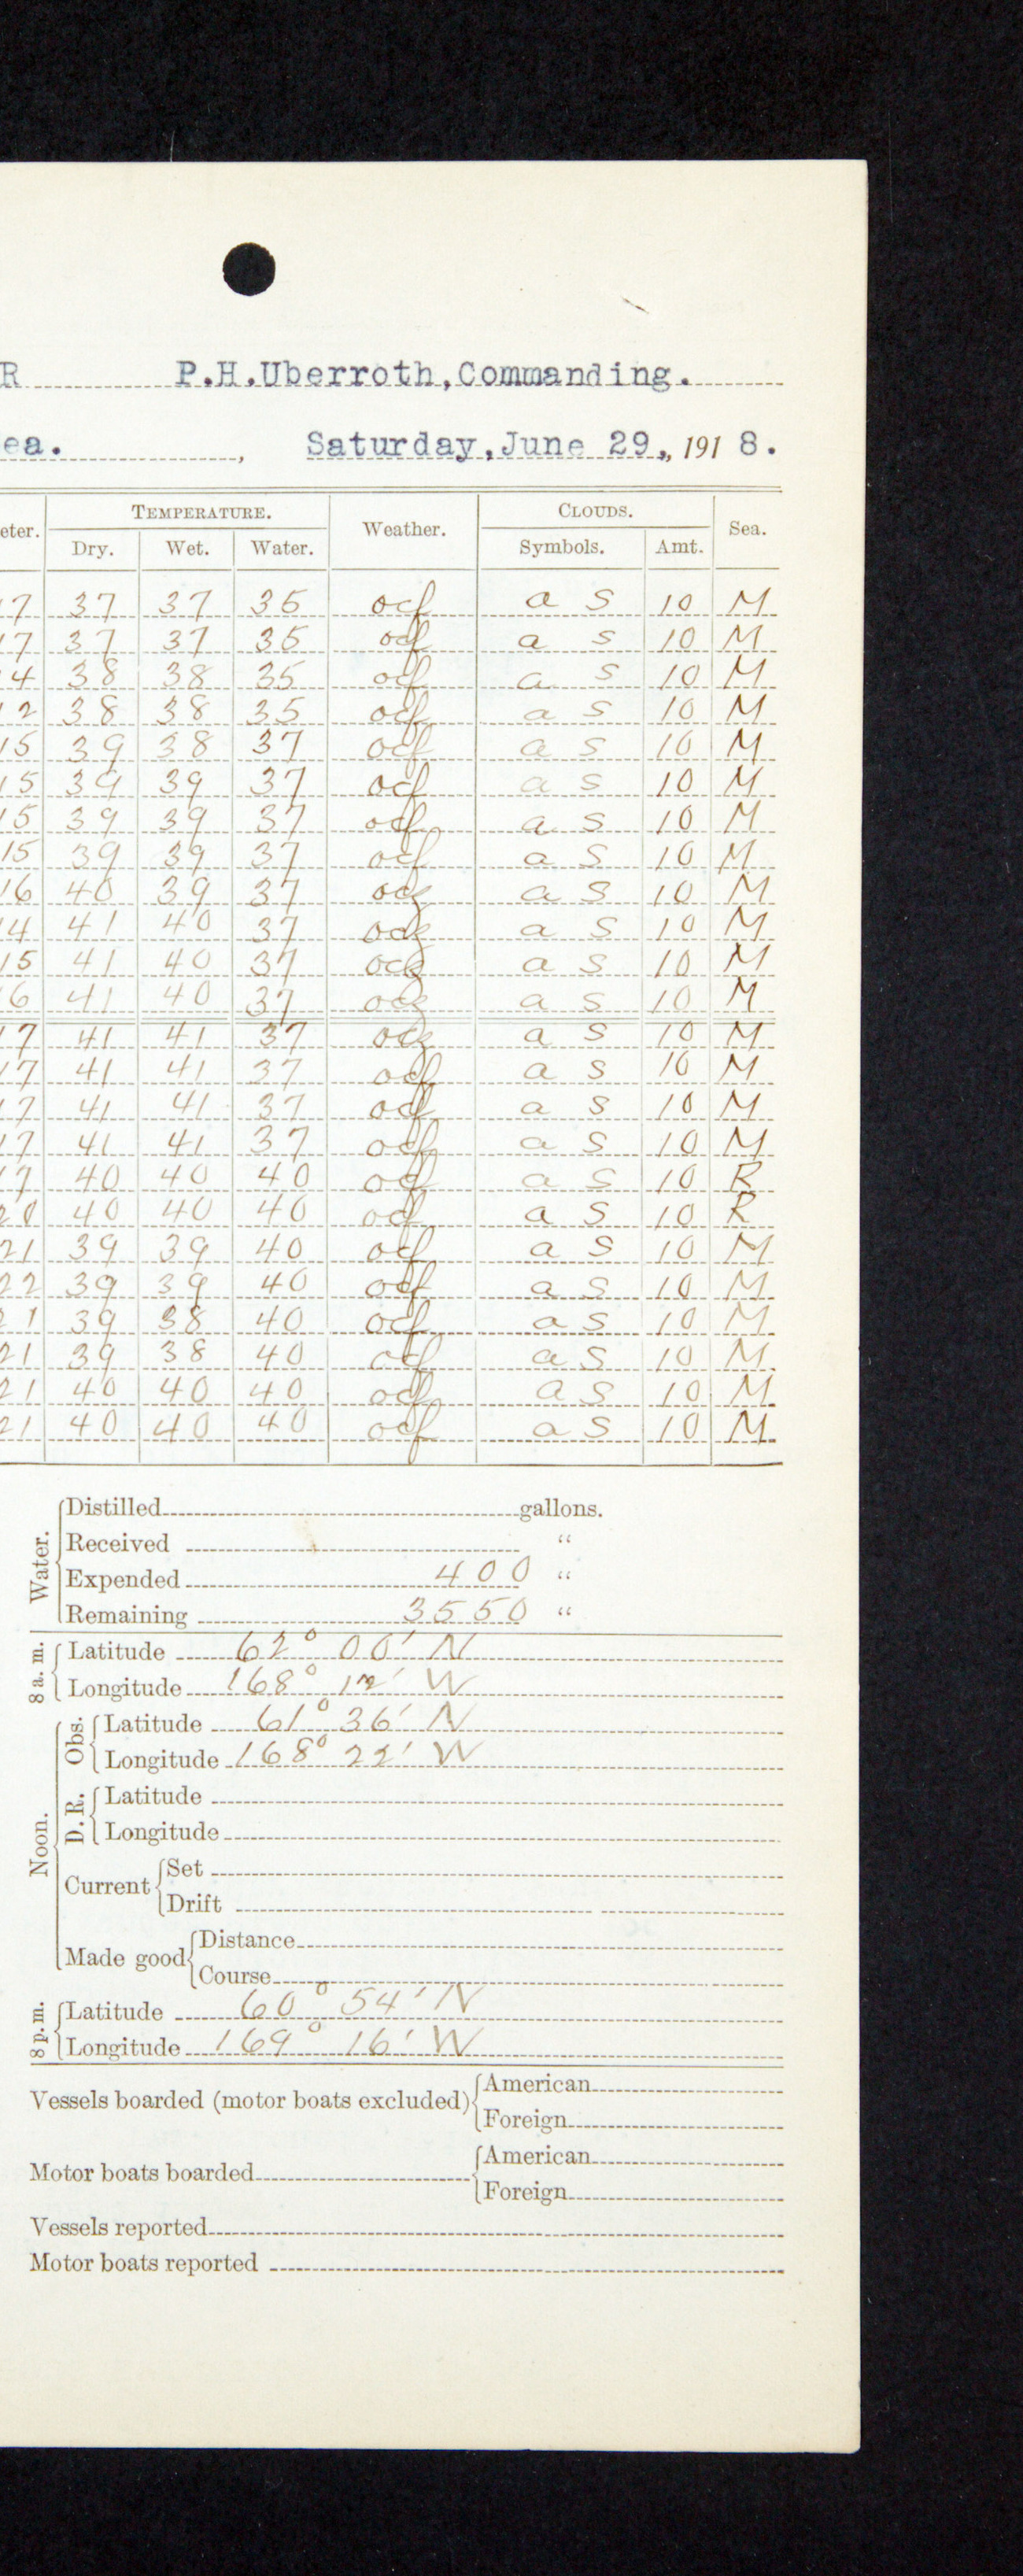 R P.H.Uberroth,Commanding.
ea. , Saturday,June 29., 1918.
eter. TEMPERATURE. Weather. CLOUDS. Sea.
Dry. Wet. Water. Symbols. Amt.
17 37 37 35 ocf a s 10 M
17 37 37 35 ocf a s 10 M
14 38 38 35 ocf a s 10 M
12 38 38 35 ocf a s 10 M
15 39 38 37 ocf a s 10 M
15 39 39 37 ocf a s 10 M
15 39 39 37 ocf a s 10 M
15 39 39 37 ocf a s 10 M
16 40 39 37 ocz a s 10 M
14 41 40 37 ocz a s 10 M
15 41 40 37 ocz a s 10 M
6 41 40 37 ocz a s 10 M
17 41 41 37 ocz a s 10 M
17 41 41 37 ocf a s 10 M
17 41 41 37 ocf a s 10 M
17 41 41 37 ocf a s 10 M
17 40 40 40 ocf a s 10 R
20 40 40 40 ocf a s 10 R
21 39 39 40 ocf a s 10 M
22 39 39 40 ocf a s 10 M
21 39 38 40 ocf a s 10 M
21 39 38 40 ocf a s 10 M
21 40 40 40 ocf a s 10 M
21 40 40 40 ocf a s 10 M
Water. Distilled gallons.
Received "
Expended 400 "
Remaining 3550 "
8 a. m. Latitude 62° 00' N
Longitude 168° 12' W
Noon. Obs. Latitude 61° 36' N
Longitude 168° 22' W
D. R. Latitude
Longitude
Current Set
Drift
Made good Distance
Course
8 p. m. Latitude 60° 54' N
Longitude 169° 16' W
Vessels boarded (motor boats excluded) American
Foreign
Motor boats boarded American
Foreign
Vessels reported
Motor boats reported